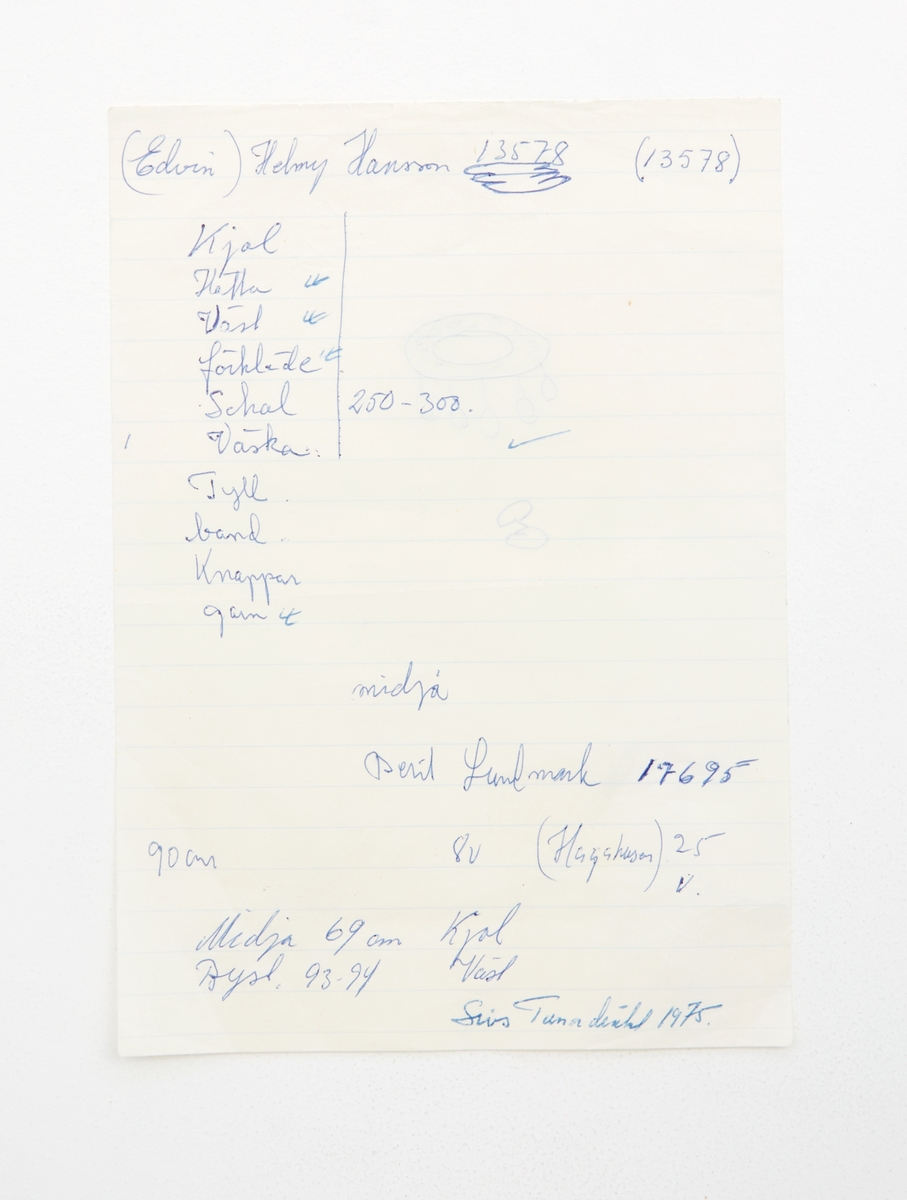 (Edvin) Helmy Hansson 13578 (13578)
Kjol
Hätta
Väst
förkläde
Schal 250-300.
Väska.
Tyll.
band.
Knappar
garn
midja
Berit Lundmark 17695
90 cm 8v (Hagahusen) 25
v.
Midja 69 cm Kjol
Byst. 93-94 Väst
Sivs Tunadräkt 1975.